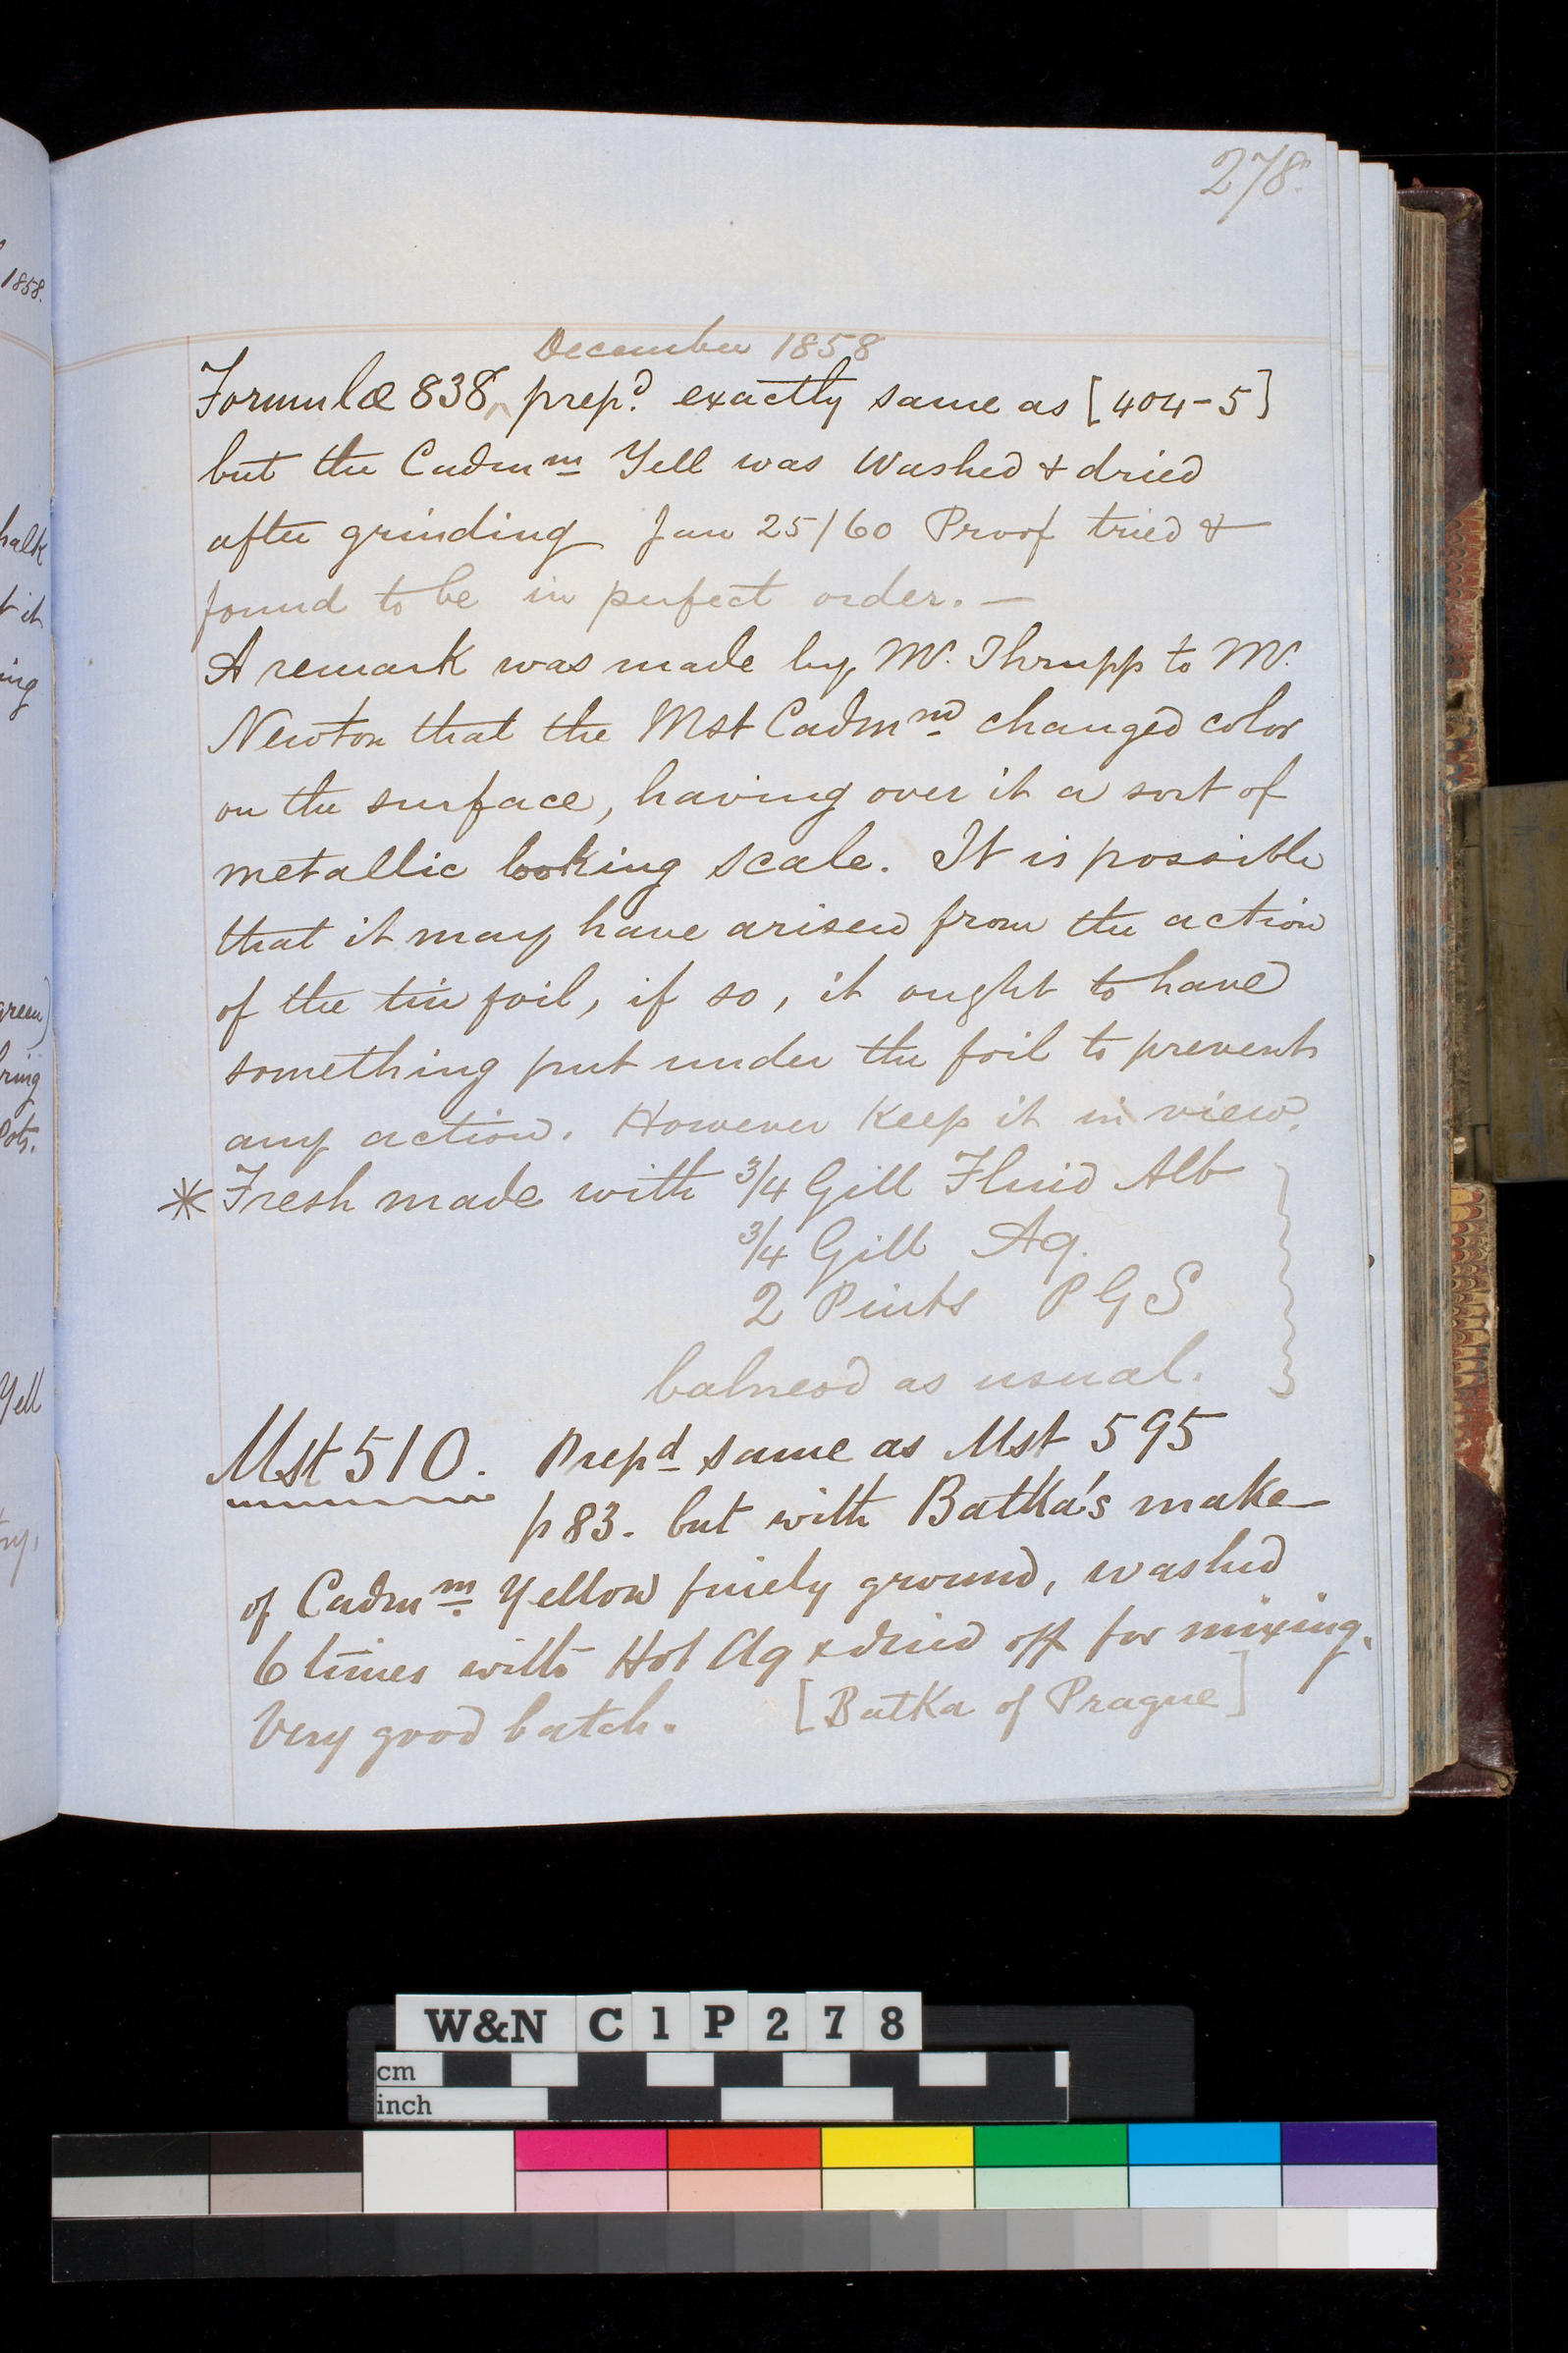 278.
December 1858
Formulæ 838, prepd exactly same as [404-5]
but the Cadmm Yell was Washed & dried
after grinding Jan 25/60 Proof tried &
found to be in perfect order. —
A remark was made by Mr. Thrupp to Mr.
Newton that the Mst Cadmm changed color
on the surface, having over it a sort of
metallic looking scale. It is possible
that it may have arisen from the action
of the tin foil, if so, it ought to have
something put under the foil to prevent
any action. However Keep it in view.
* Fresh made with 3/4 Gill Fluid Alb
3/4 Gill Aq.
2 Pints P G S
balneod as usual.
Mst 510. Prepd same as Mst 595
p 83. but with Batka's make
of Cadmm Yellow finely ground, washed
6 times with Hot Aq & dried off for mixing.
Very good batch. [Batka of Prague]
1858.
halk
t it
ing
green)
ring
Pots.
Yell
W&N C1P278
cm
inch